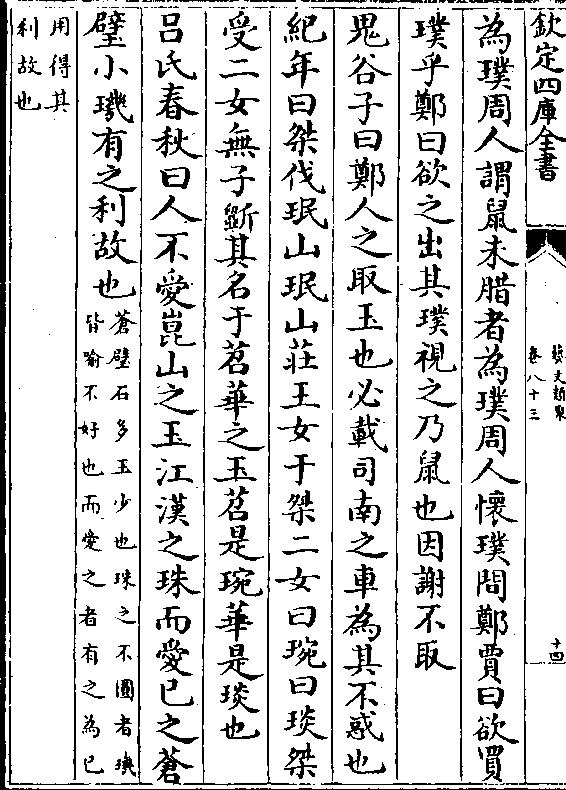 欽定四庫全書
藝文類聚
卷八十三
十四
為璞周人謂鼠未腊者為璞周人懷璞問鄭賈曰欲買
璞乎鄭曰欲之出其璞視之乃鼠也因謝不取
鬼谷子曰鄭人之取玉也必載司南之車為其不惑也
紀年曰桀伐珉山珉山莊王女于桀二女曰琬曰琰桀
受二女無子斵其名于苕華之玉苕是琬華是琰也
呂氏春秋曰人不愛崑山之玉江漢之珠而愛已之蒼
璧小璣有之利故也
蒼璧石多玉少也珠之不圜者璣
皆喻不好也而愛之者有之為已
用得其
利故也